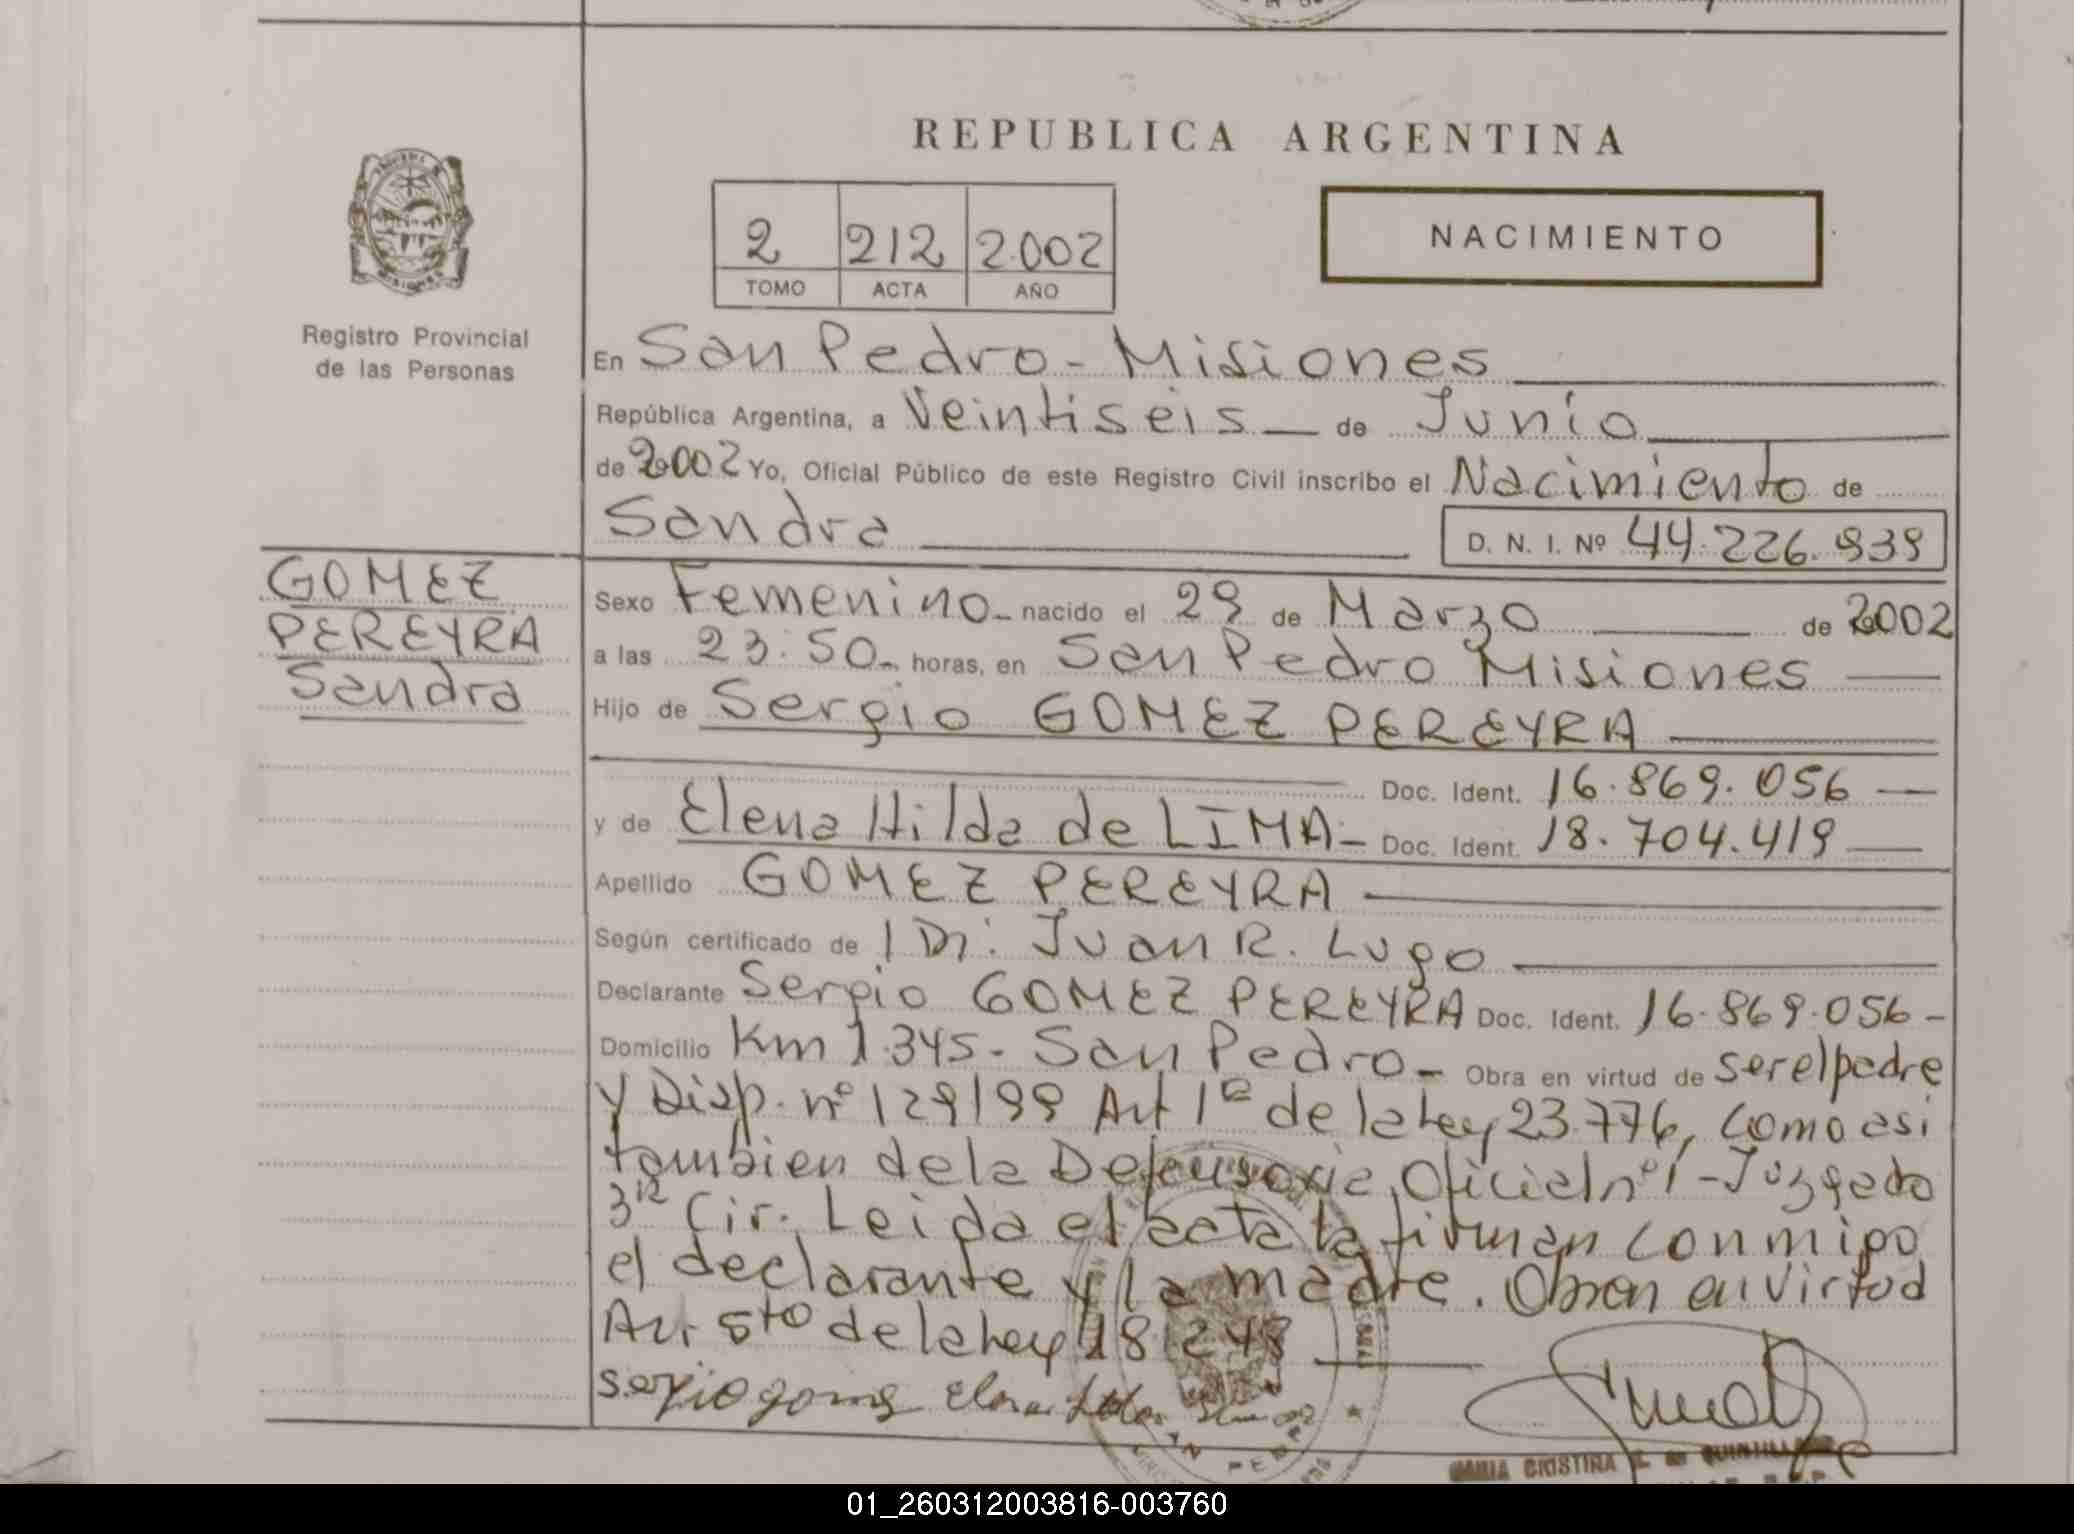 REPUBLICA ARGENTINA
2 212 2.002
TOMO ACTA AÑO
NACIMIENTO
Registro Provincial
de las Personas
En San Pedro - Misiones
República Argentina, a Veintiseis de Junio
de 2002 Yo, Oficial Público de este Registro Civil inscribo el Nacimiento de
Sandra
D. N. I. Nº 44.226.939
GOMEZ
PEREYRA
Sandra
Sexo Femenino nacido el 29 de Marzo de 2002
a las 23:50 horas, en San Pedro Misiones
Hijo de Sergio GOMEZ PEREYRA
Doc. Ident. 16.869.056
y de Elena Hilda de LIMA - Doc. Ident. 18.704.419
Apellido GOMEZ PEREYRA
Según certificado de Dr. Juan R. Lugo
Declarante Sergio GOMEZ PEREYRA Doc. Ident. 16.869.056 -
Domicilio Km 1.345 - San Pedro - Obra en virtud de ser el padre
y Disp. nº 129/99 Art 1º de la Ley 23.776, como asi
tambien de la Defensoria Oficial nº 1 - Juzgado
3ra Cir. Leida el acta la firman conmigo
el declarante y la madre. Obran en virtud
Art 5to de la Ley 18.248
sergio gomes Elena
SAN PEDRO
MARIA CRISTINA
01_260312003816-003760